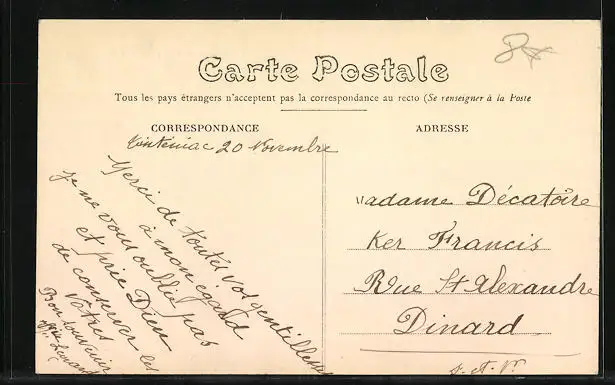 Carte Postale
Tous les pays étrangers n'acceptent pas la correspondance au recto (Se renseigner à la Poste
CORRESPONDANCE
ADRESSE
Tinténiac 20 Novembre
Merci de toutes vos gentillesses
à mon égard
je ne vous oublie pas
et prie Dieu
de conserver les
Vôtres
Bon souvenir
Madame Décatoire
Ker Francis
Rue St Alexandre
Dinard